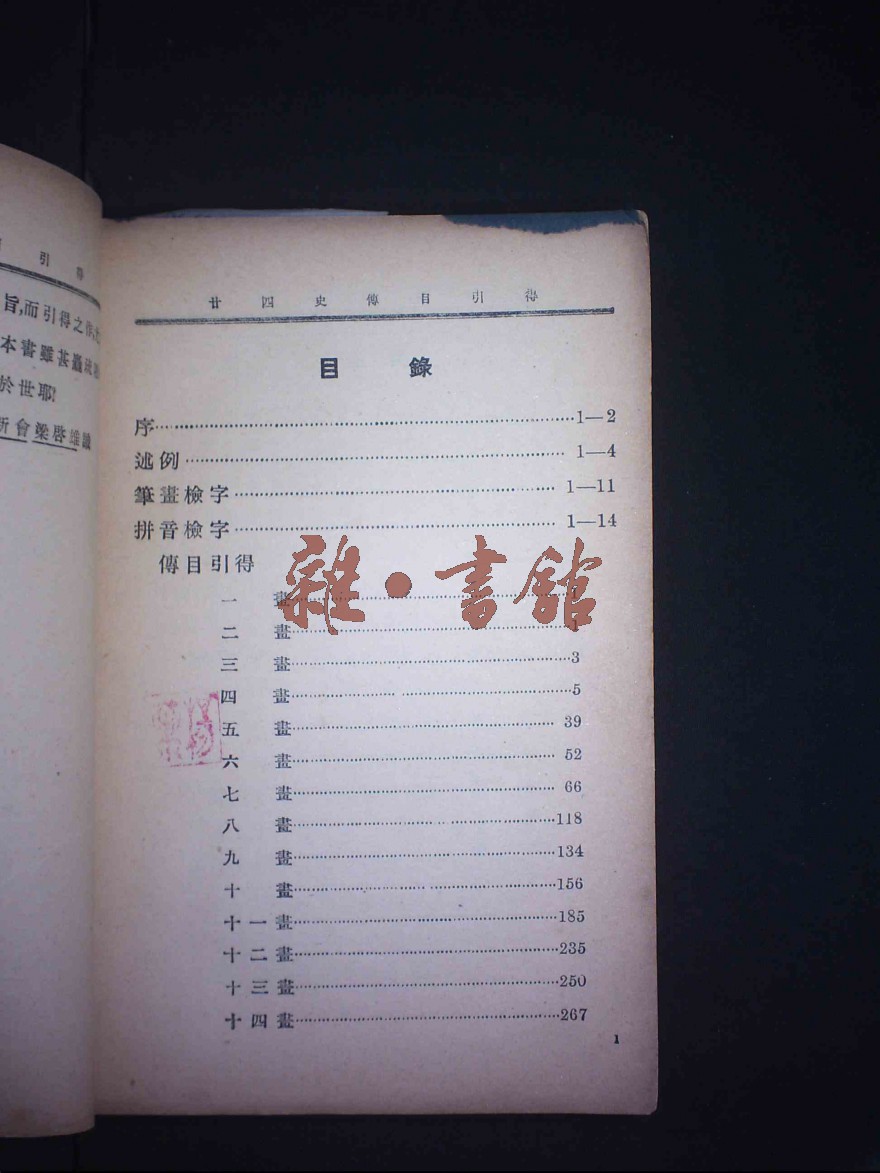 引得
旨,而引得之作,
本書雖甚
於世耶!
新會梁啓雄識
廿四史傳目引得
目錄
序……1—2
述例……1—4
筆畫檢字……1—11
拼音檢字……1—14
傳目引得
一畫……1
二畫……1
三畫……3
四畫……5
五畫……39
六畫……52
七畫……66
八畫……118
九畫……134
十畫……156
十一畫……185
十二畫……235
十三畫……250
十四畫……267
1
雜·書館